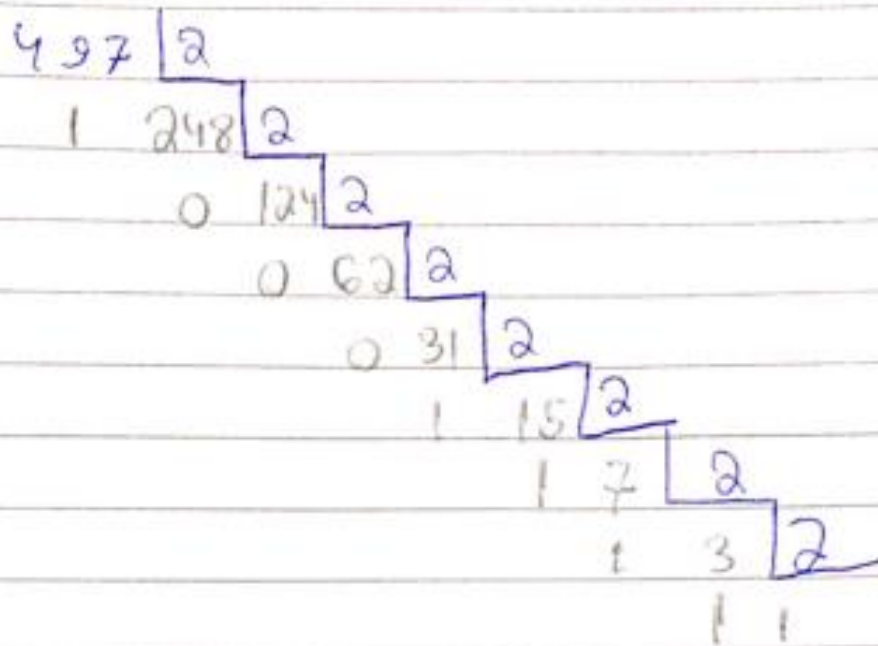 497 2
1 248 2
0 124 2
0 62 2
0 31 2
1 15 2
1 7 2
1 3 2
1 1